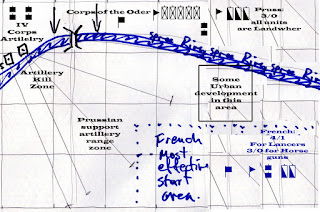 IV
Corps
Artlelry
Corps of the Oder
Pruss:
3/0
all units
are Landwher
Artillery
Kill
Zone
Some
Urban
development
in this
area
Prussian
support
artillery
range
zone
French
Most
effective
start
area.
French:
4/1
For Lancers
3/0 for Horse
guns